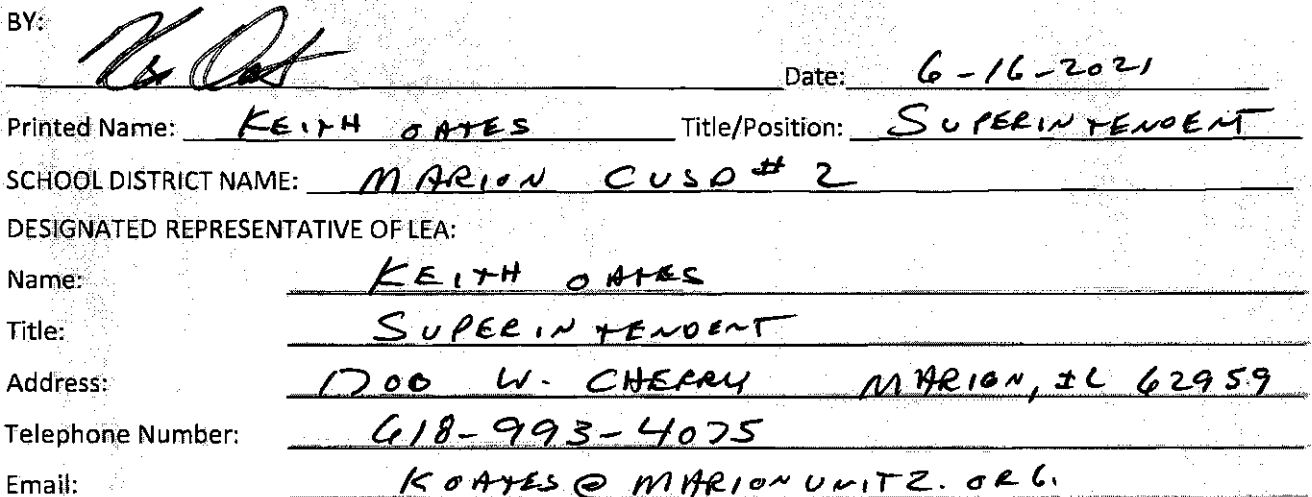 BY:
Date: 6-16-2021
Printed Name: KEITH OATES Title/Position: SUPERINTENDENT
SCHOOL DISTRICT NAME: MARION CUSD # 2
DESIGNATED REPRESENTATIVE OF LEA:
Name: KEITH OATES
Title: SUPERINTENDENT
Address: 1700 W. CHERRY MARION, IL 62959
Telephone Number: 618-993-4075
Email: KOATES@MARIONUNIT2.ORG.